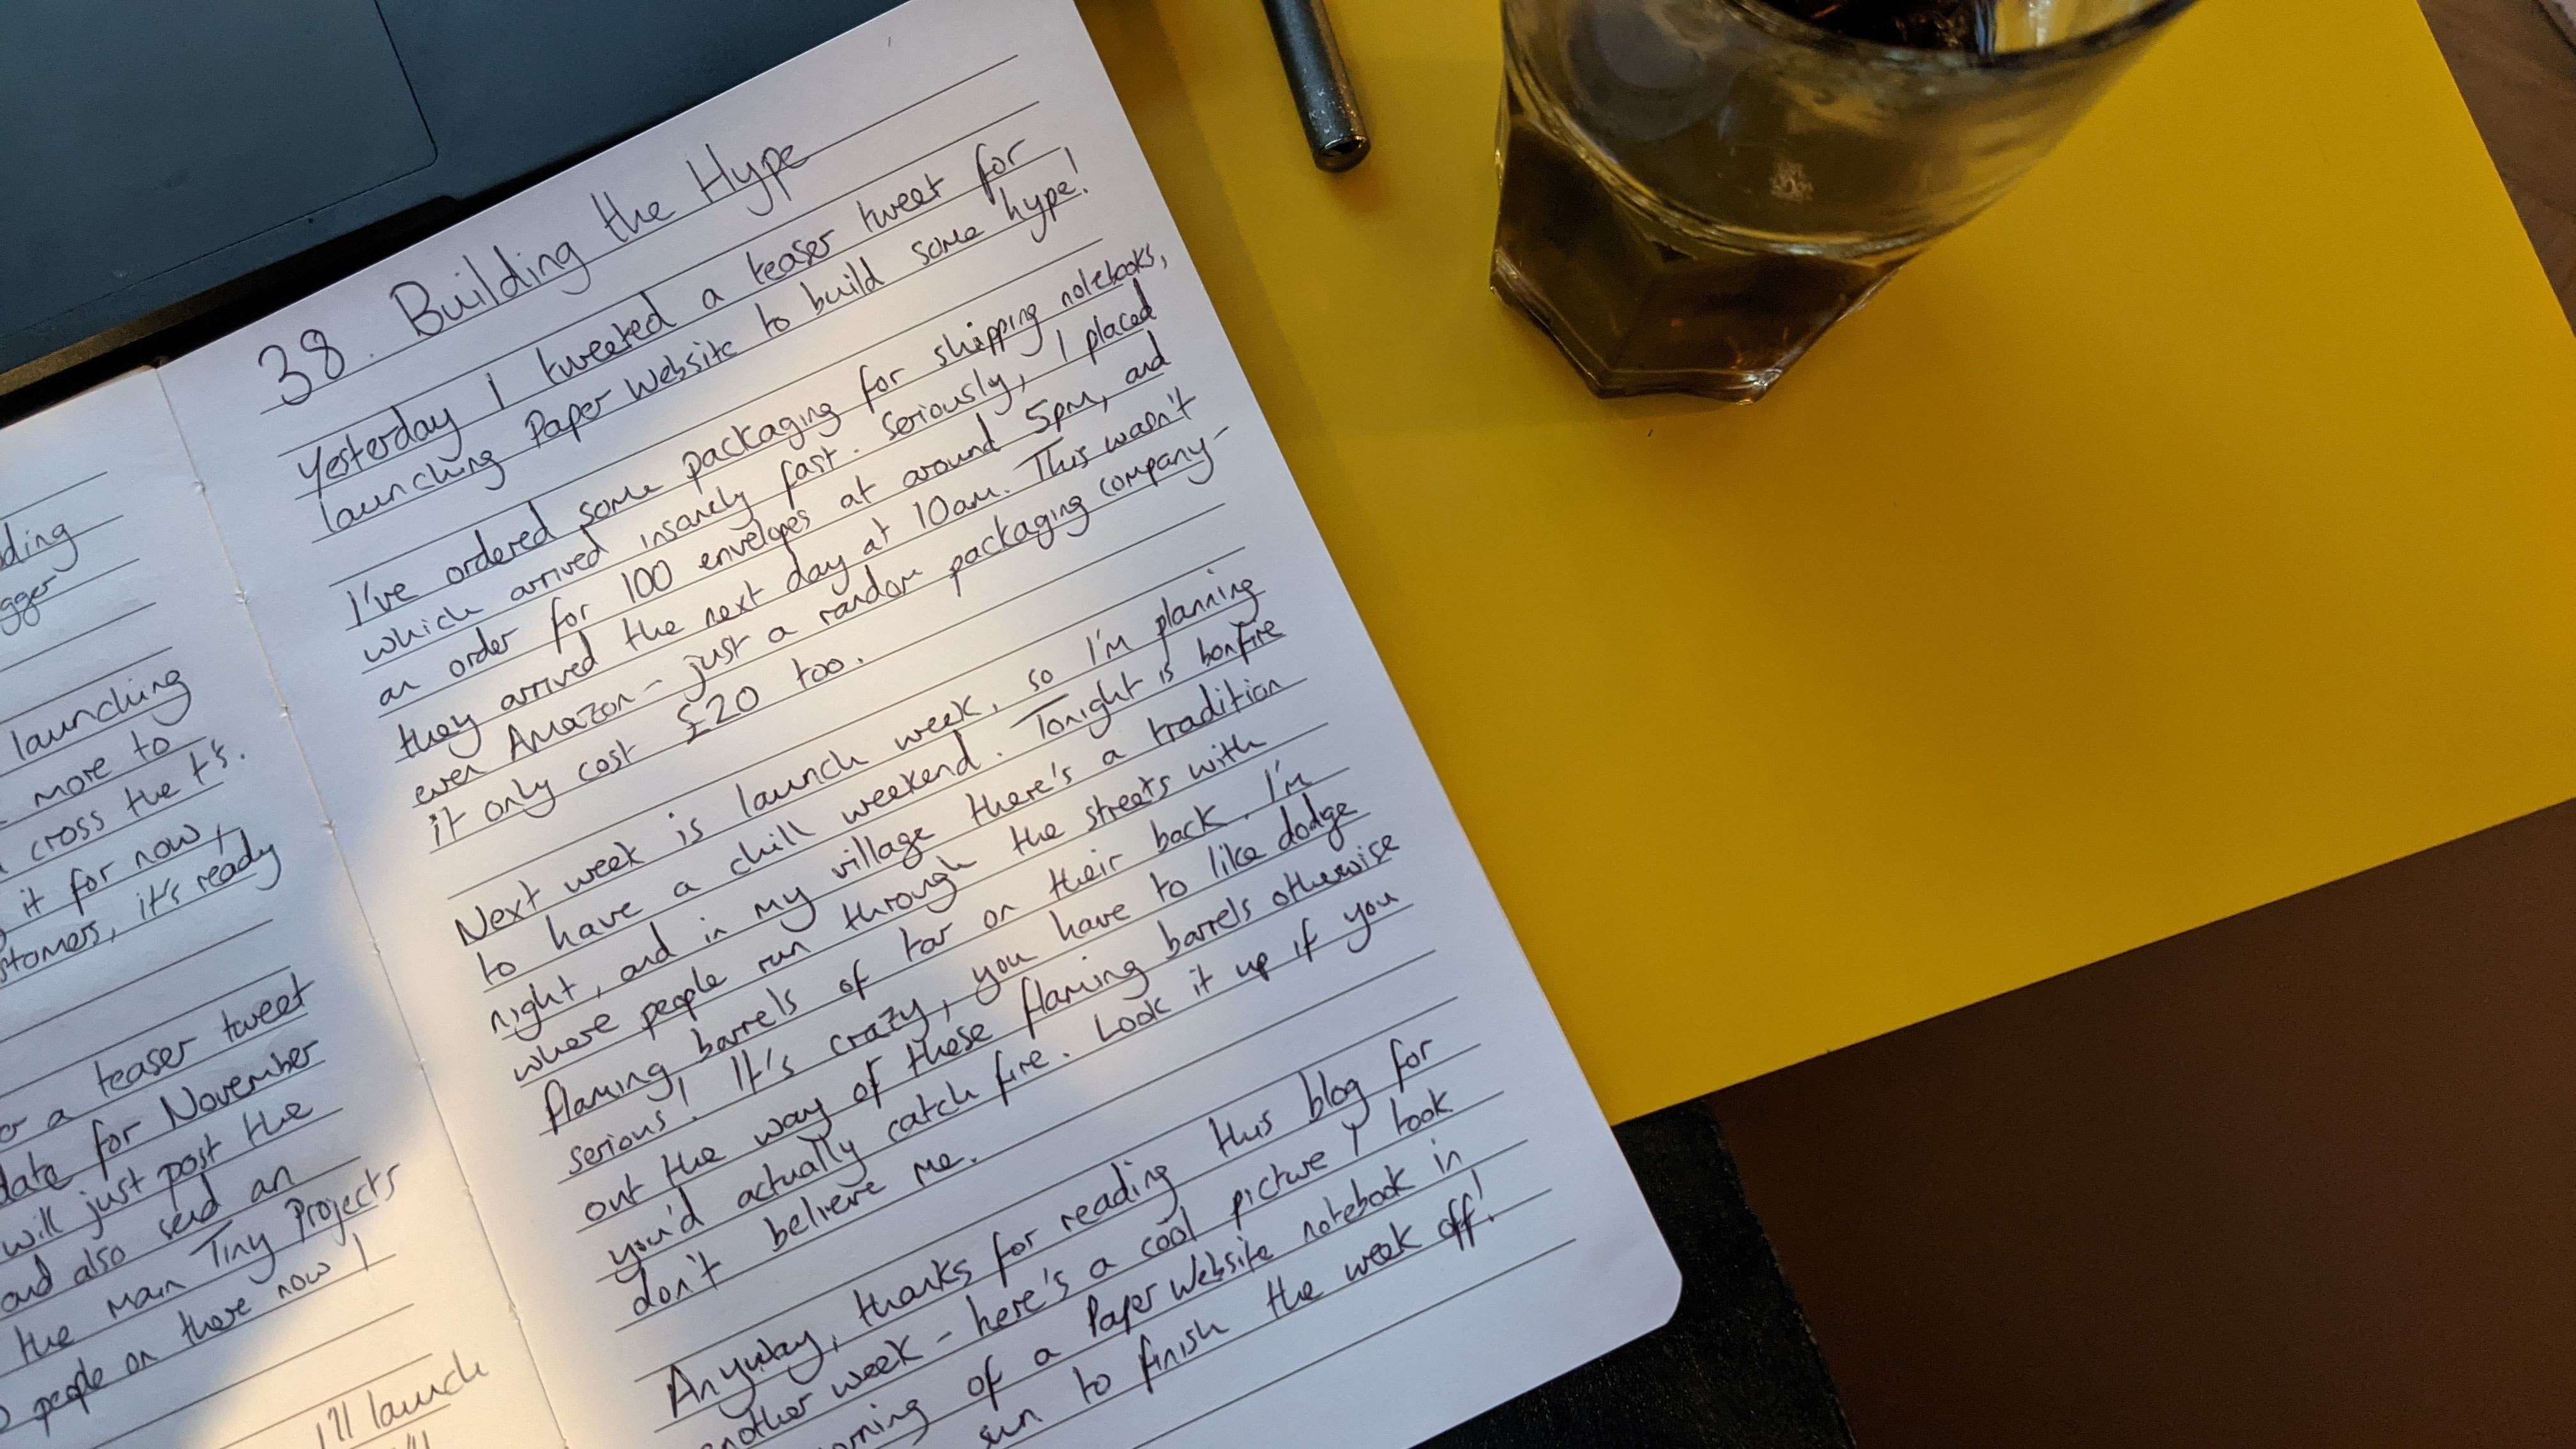 ding
gger
launching
more to
cross the t's.
it for now,
stomers, it's ready
a teaser tweet
date for November
will just post the
and also send an
the main Tiny Projects
people on there now!
I'll launch
38. Building the Hype
Yesterday I tweeted a teaser tweet for
launching Paper Website to build some hype!
I've ordered some packaging for shipping notebooks,
which arrived insanely fast. Seriously, I placed
an order for 100 envelopes at around 5pm, and
they arrived the next day at 10am. This wasn't
even Amazon - just a random packaging company -
it only cost £20 too.
Next week is launch week, so I'm planning
to have a chill weekend. Tonight is bonfire
night, and in my village there's a tradition
where people run through the streets with
flaming barrels of tar on their back. I'm
serious! It's crazy, you have to like dodge
out the way of these flaming barrels otherwise
you'd actually catch fire. Look it up if you
don't believe me.
Anyway, thanks for reading this blog for
another week - here's a cool picture I took
orning of a Paper Website notebook in
sun to finish the week off!